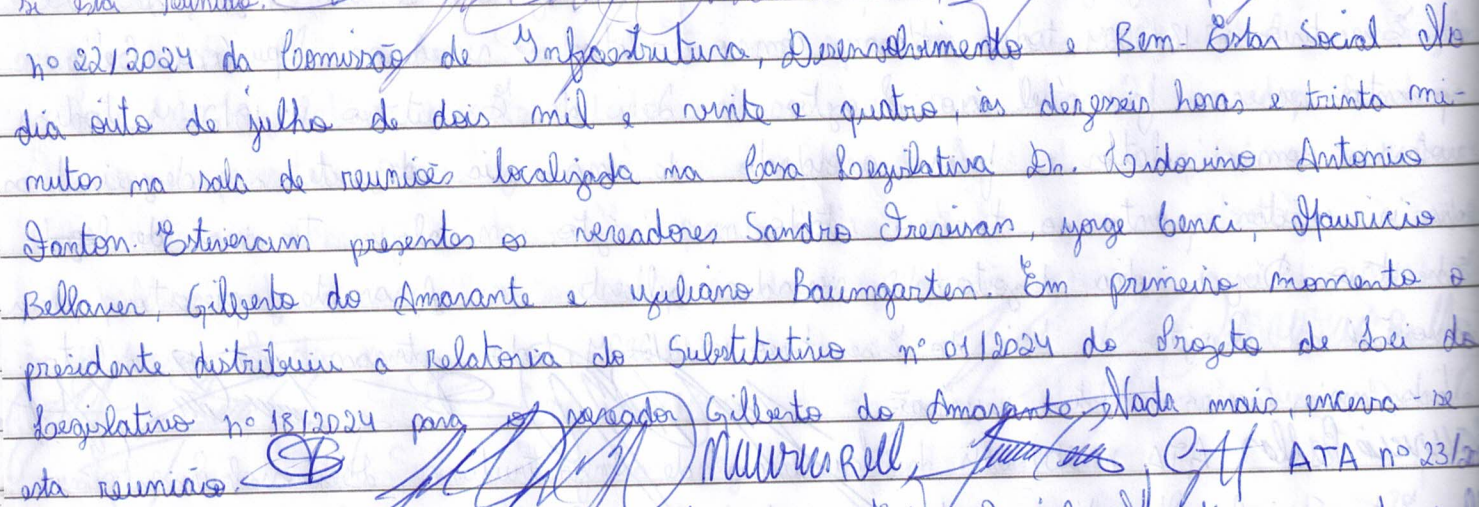 se esta reunião.
nº 22/2024 da Comissão de Infraestrutura, Desenvolvimento e Bem-Estar Social. No
dia oito de julho de dois mil e vinte e quatro, às dezesseis horas e trinta mi-
nutos na sala de reuniões localizada na Casa Legislativa Dr. Lidovino Antonio
Fanton. Estiveram presentes os vereadores Sandro Trevisan, Jorge Cenci, Mauricio
Bellaver, Gilberto do Amarante e Juliano Baumgarten. Em primeiro momento o
presidente distribuiu a relatoria do Substitutivo nº 01/2024 do Projeto de Lei do
Legislativo nº 18/2024 para o vereador Gilberto do Amarante. Nada mais, encerra-se
esta reunião. Mauricio Bell, ATA nº 23/2